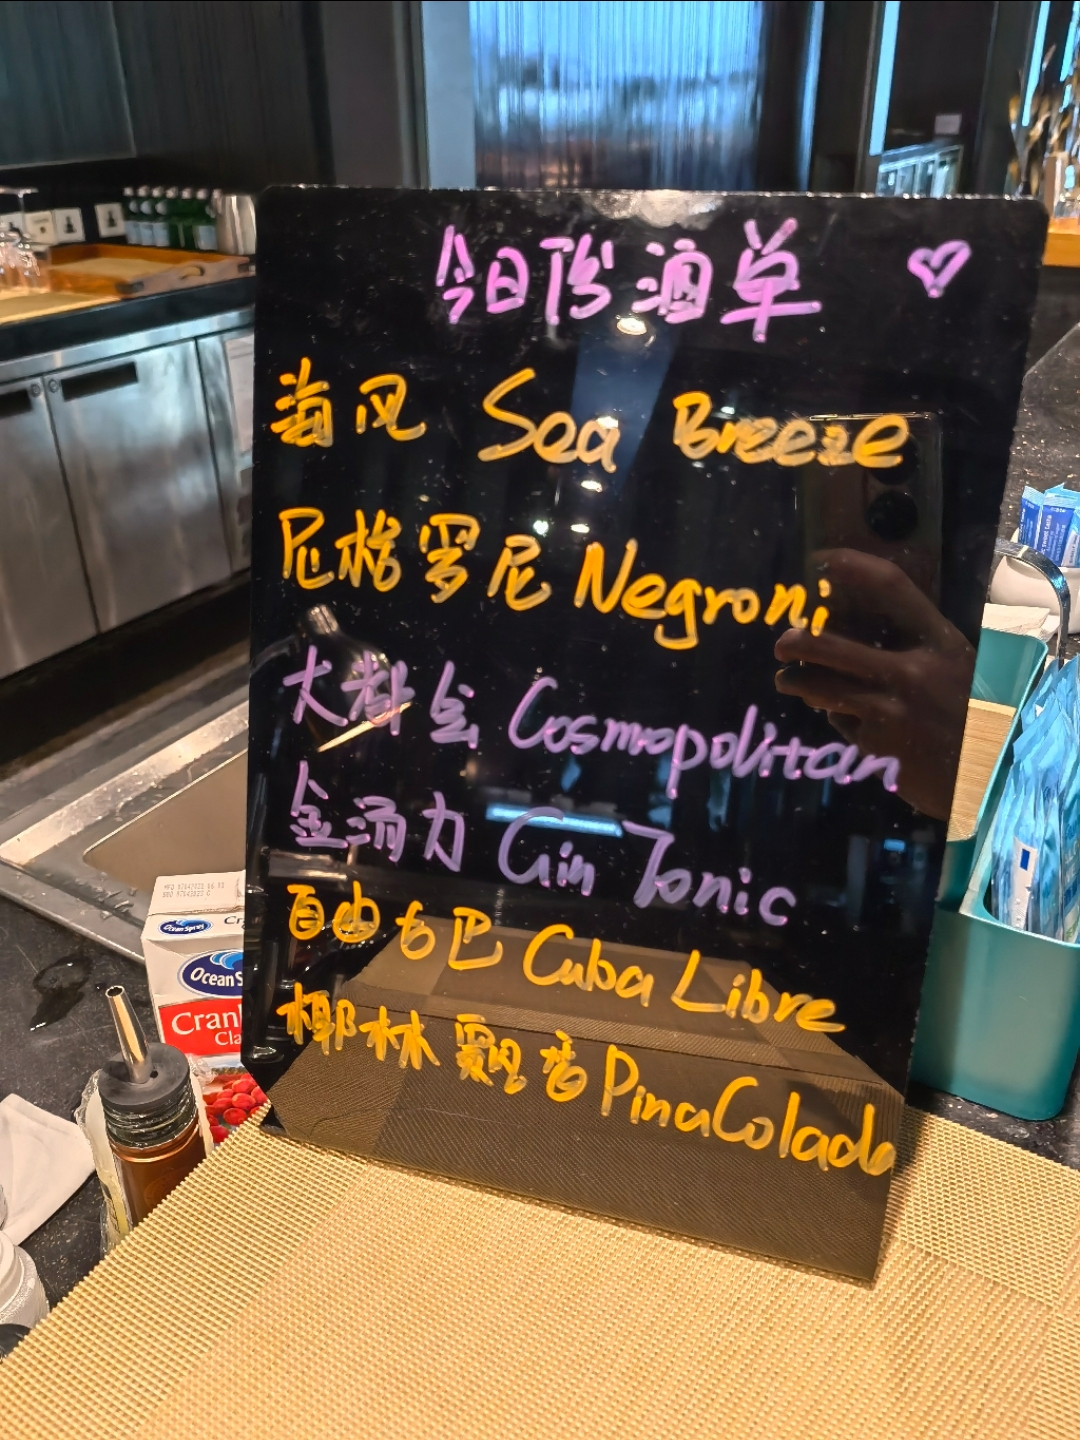 今日份酒单
海风 Sea Breeze
尼格罗尼 Negroni
大都会 Cosmopolitan
金汤力 Gin Tonic
自由古巴 Cuba Libre
椰林飘香 Pina Colada
Ocean Spray
Ocean S
Cran
Cla